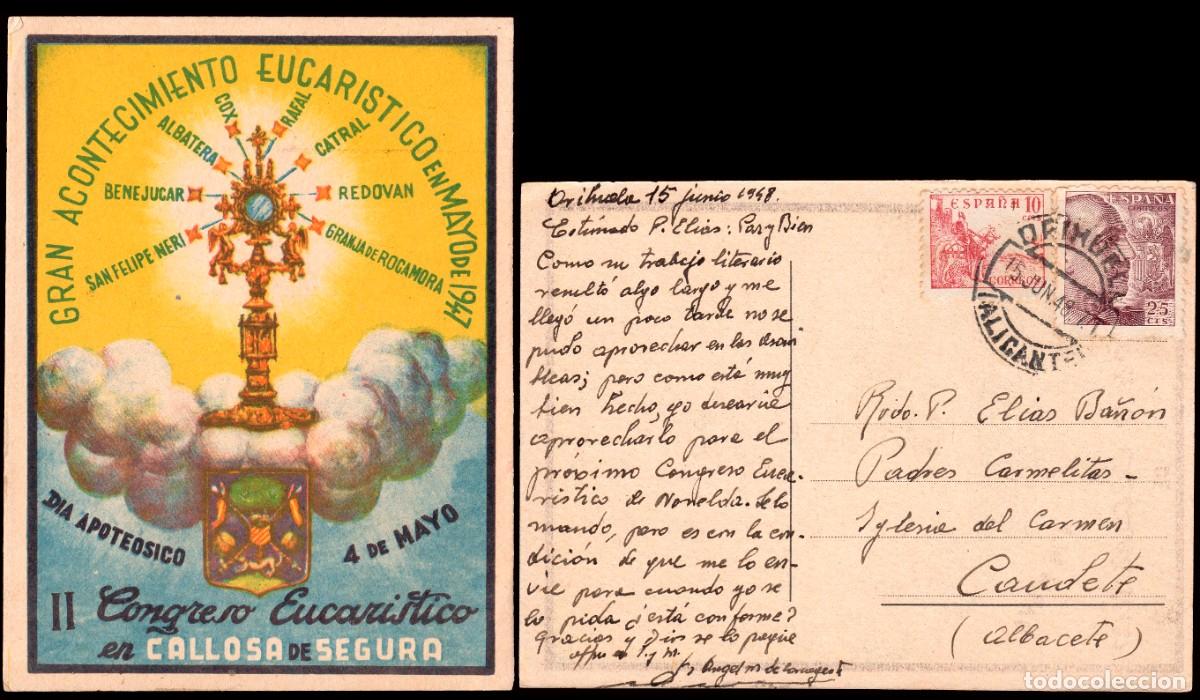 GRAN ACONTECIMIENTO EUCARISTICO EN MAYO DE 1947
COX
RAFAL
ALBATERA
CATRAL
BENEJUCAR
REDOVAN
SAN FELIPE NERI
GRANJA DE ROCAMORA
DIA APOTEOSICO
4 DE MAYO
II Congreso Eucaristico
en CALLOSA DE SEGURA
Orihuela 15 junio 1948.
Estimado P. Elias: Paz y Bien
Como su trabajo literario
resultó algo largo y me
llegó un poco tarde no se
pudo aprovechar en las
; pero como está muy
bien hecho, yo desearía
aprovecharlo para el
próximo Congreso Euca-
ristico de Novelda. Se lo
mando, pero es con la con-
dición de que me lo en-
vie para cuando yo se
lo pida ¿está conforme?
Gracias y Dios se lo pague
Angel M. de
ESPAÑA 10
CTS
CORREOS
ESPAÑA
CORREOS
25
CTS
ORIHUELA
15 JUN 48
(ALICANTE)
Rvdo. P. Elias Bañón
Padres Carmelitas-
Iglesia del Carmen
Caudete
(Albacete)
todocoleccion